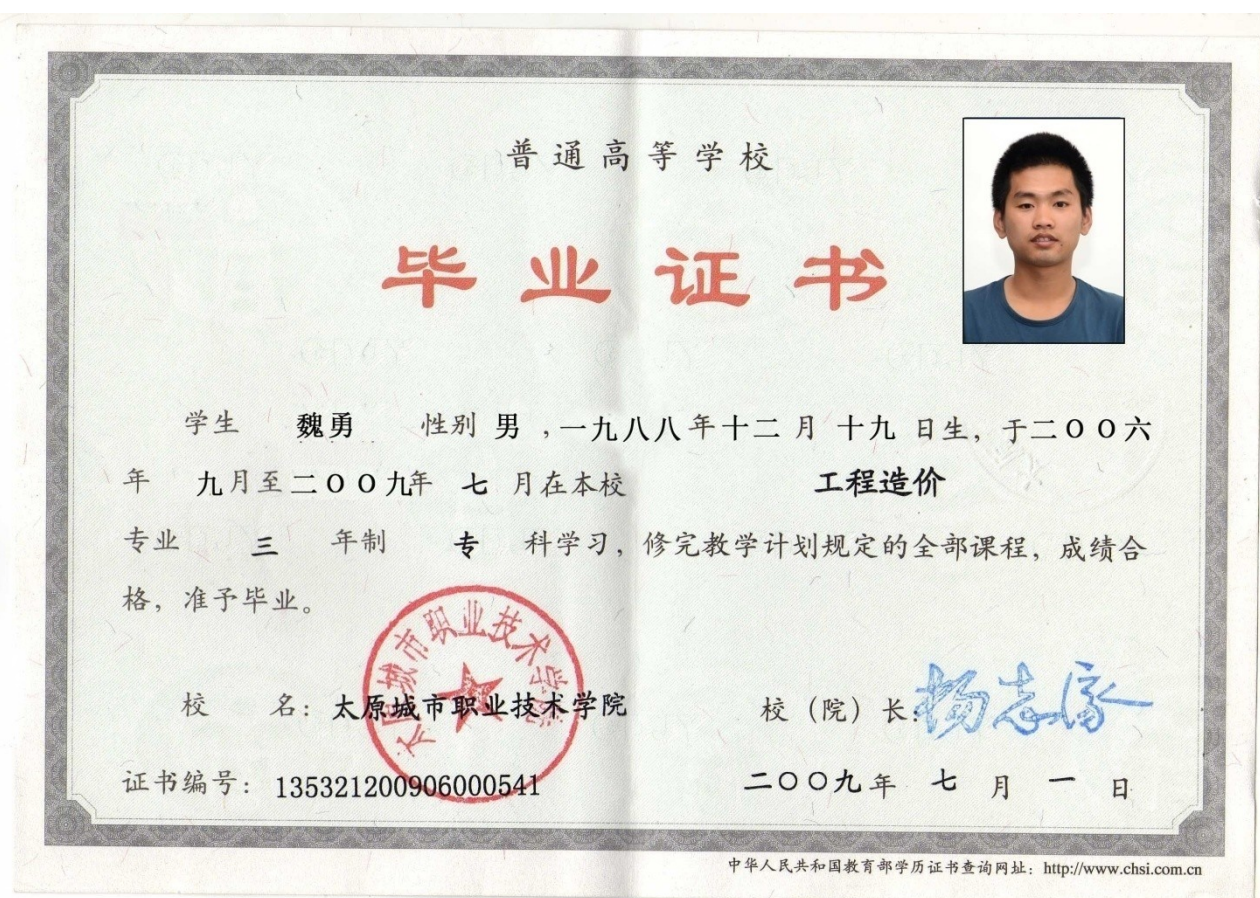 普通高等学校
毕业证书
学生 魏勇 性别 男 ,一九八八年十二月十九日生，于二００六
年 九月至二００九年 七 月在本校 工程造价
专业 三 年制 专 科学习，修完教学计划规定的全部课程，成绩合
格，准予毕业。
太原城市职业技术学院
校 名：太原城市职业技术学院
校（院）长：杨志家
证书编号：135321200906000541
二〇〇九年 七 月 一 日
中华人民共和国教育部学历证书查询网址：http://www.chsi.com.cn